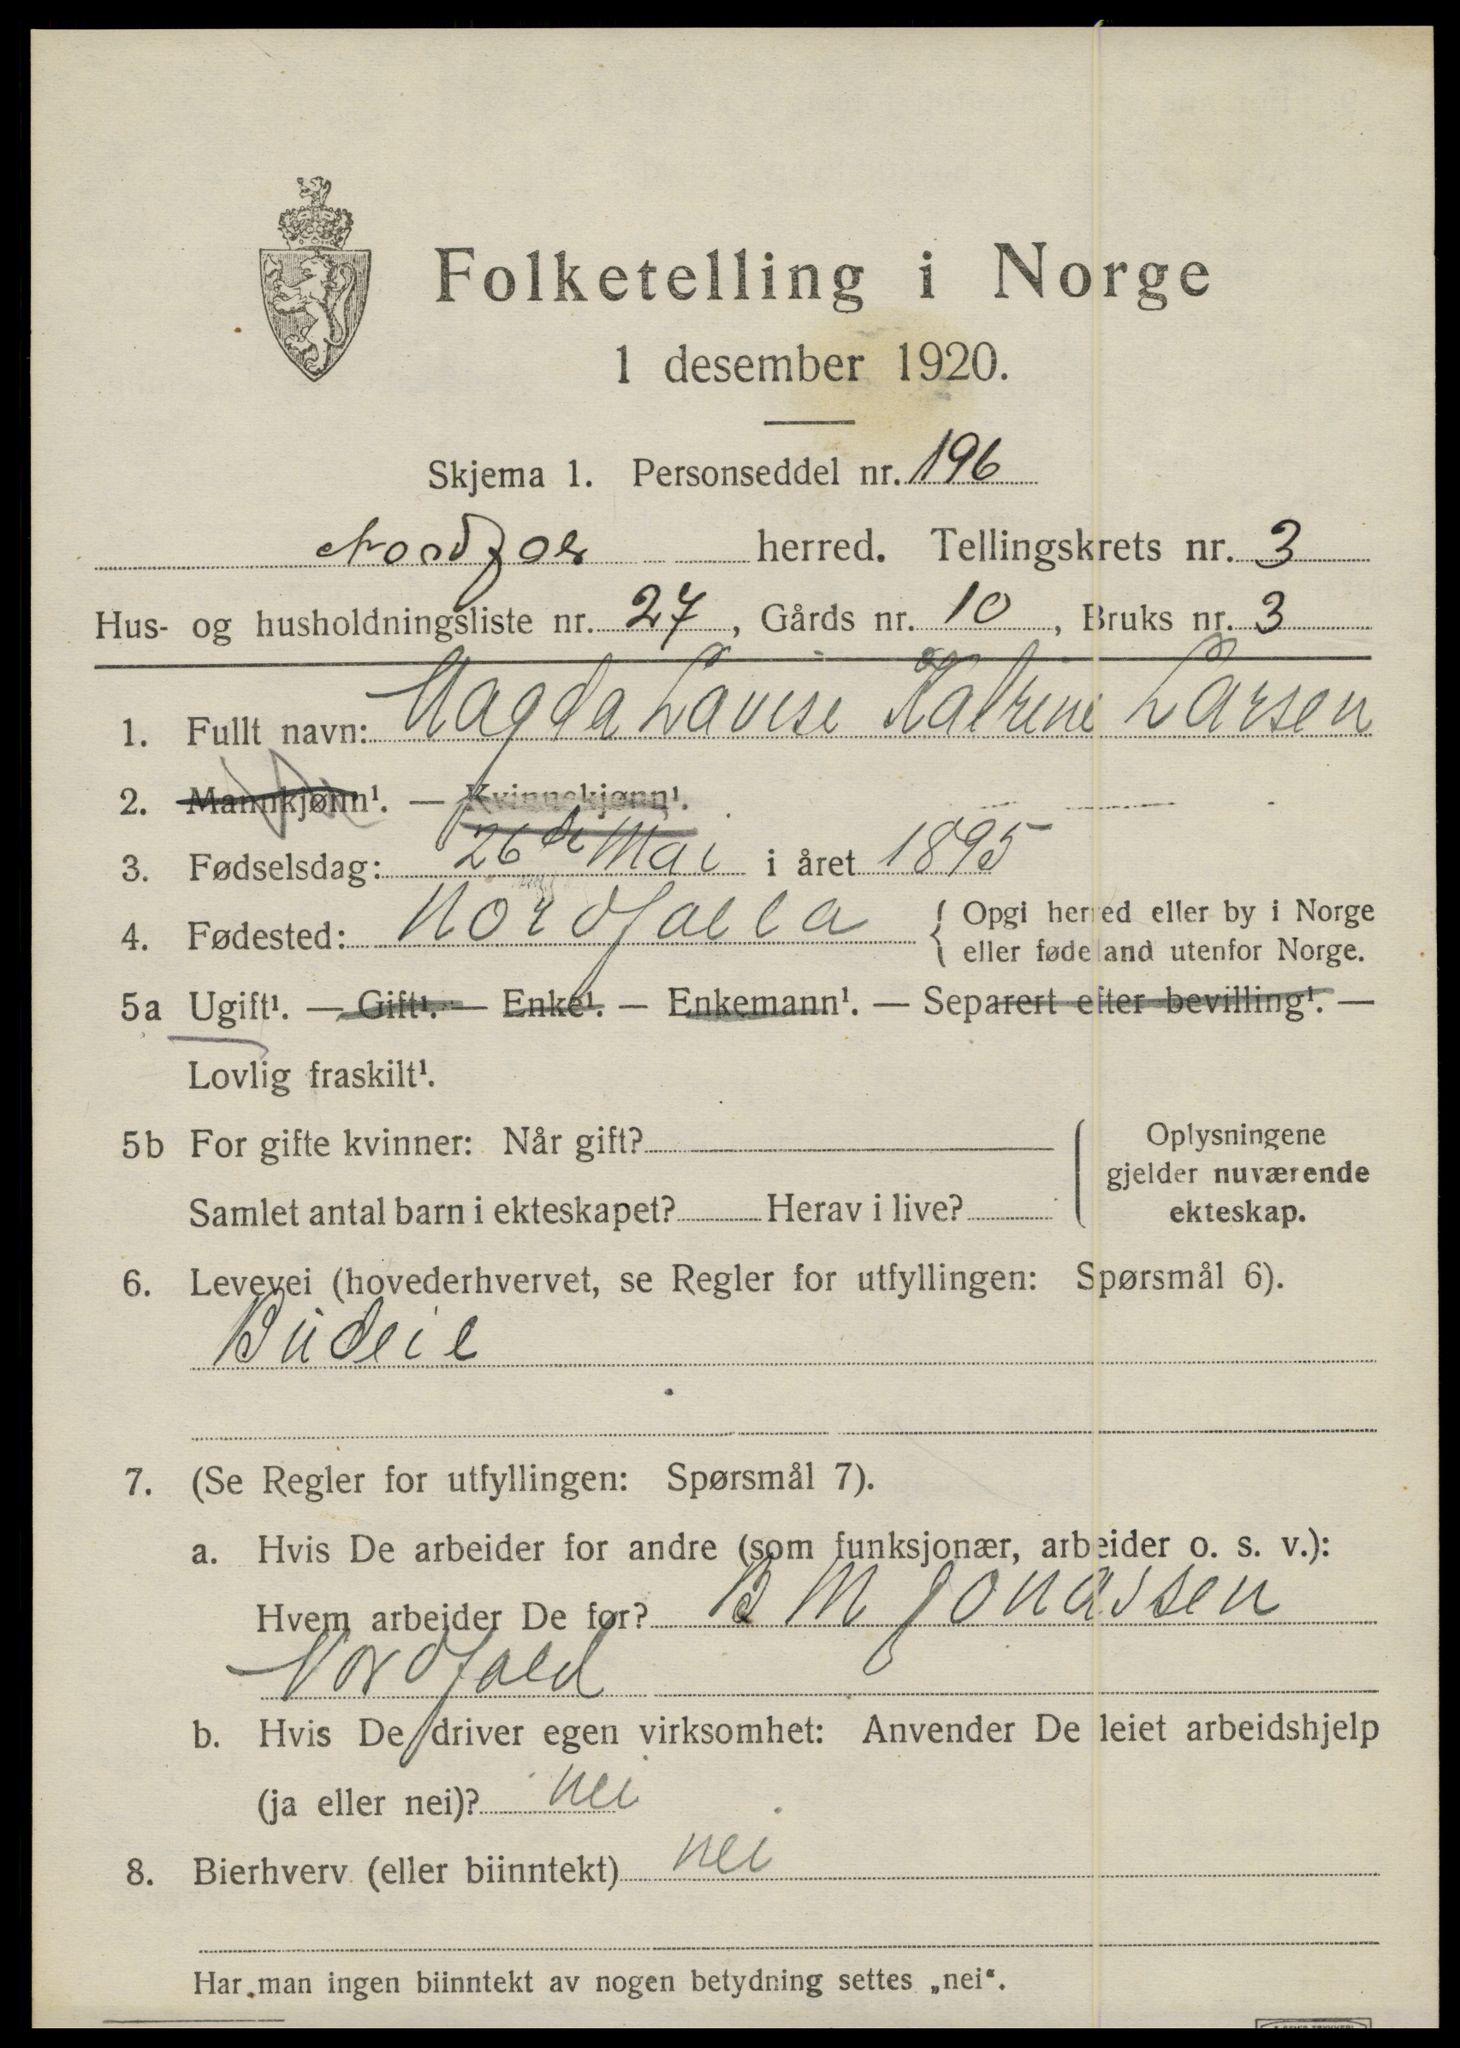 Folketelling i Norge
1 desember 1920.
Skjema 1. Personseddel nr. 196
herred. Tellingskrets nr. 3
Hus- og husholdningsliste nr. 27, Gårds nr. 10, Bruks nr. 3
1. Fullt navn: Magda Lovise Katrine Larsen
2. Mannkjønn¹. — Kvinnekjønn¹.
3. Fødselsdag: 26de Mai i året 1895
4. Fødested: { Opgi herred eller by i Norge
eller fødeland utenfor Norge.
5a Ugift¹. — Gift¹. — Enke¹. — Enkemann¹. — Separert efter bevilling¹. —
Lovlig fraskilt¹.
5b For gifte kvinner: Når gift?
Samlet antal barn i ekteskapet? Herav i live?
Oplysningene
gjelder nuværende
ekteskap.
6. Levevei (hovederhvervet, se Regler for utfyllingen: Spørsmål 6).
Büdeie
7. (Se Regler for utfyllingen: Spørsmål 7).
a. Hvis De arbeider for andre (som funksjonær, arbeider o. s. v.):
Hvem arbeider De for? B M Jonassen
Nordfold
b. Hvis De driver egen virksomhet: Anvender De leiet arbeidshjelp
(ja eller nei)? nei
8. Bierhverv (eller biinntekt) nei
Har man ingen biinntekt av nogen betydning settes „nei“.